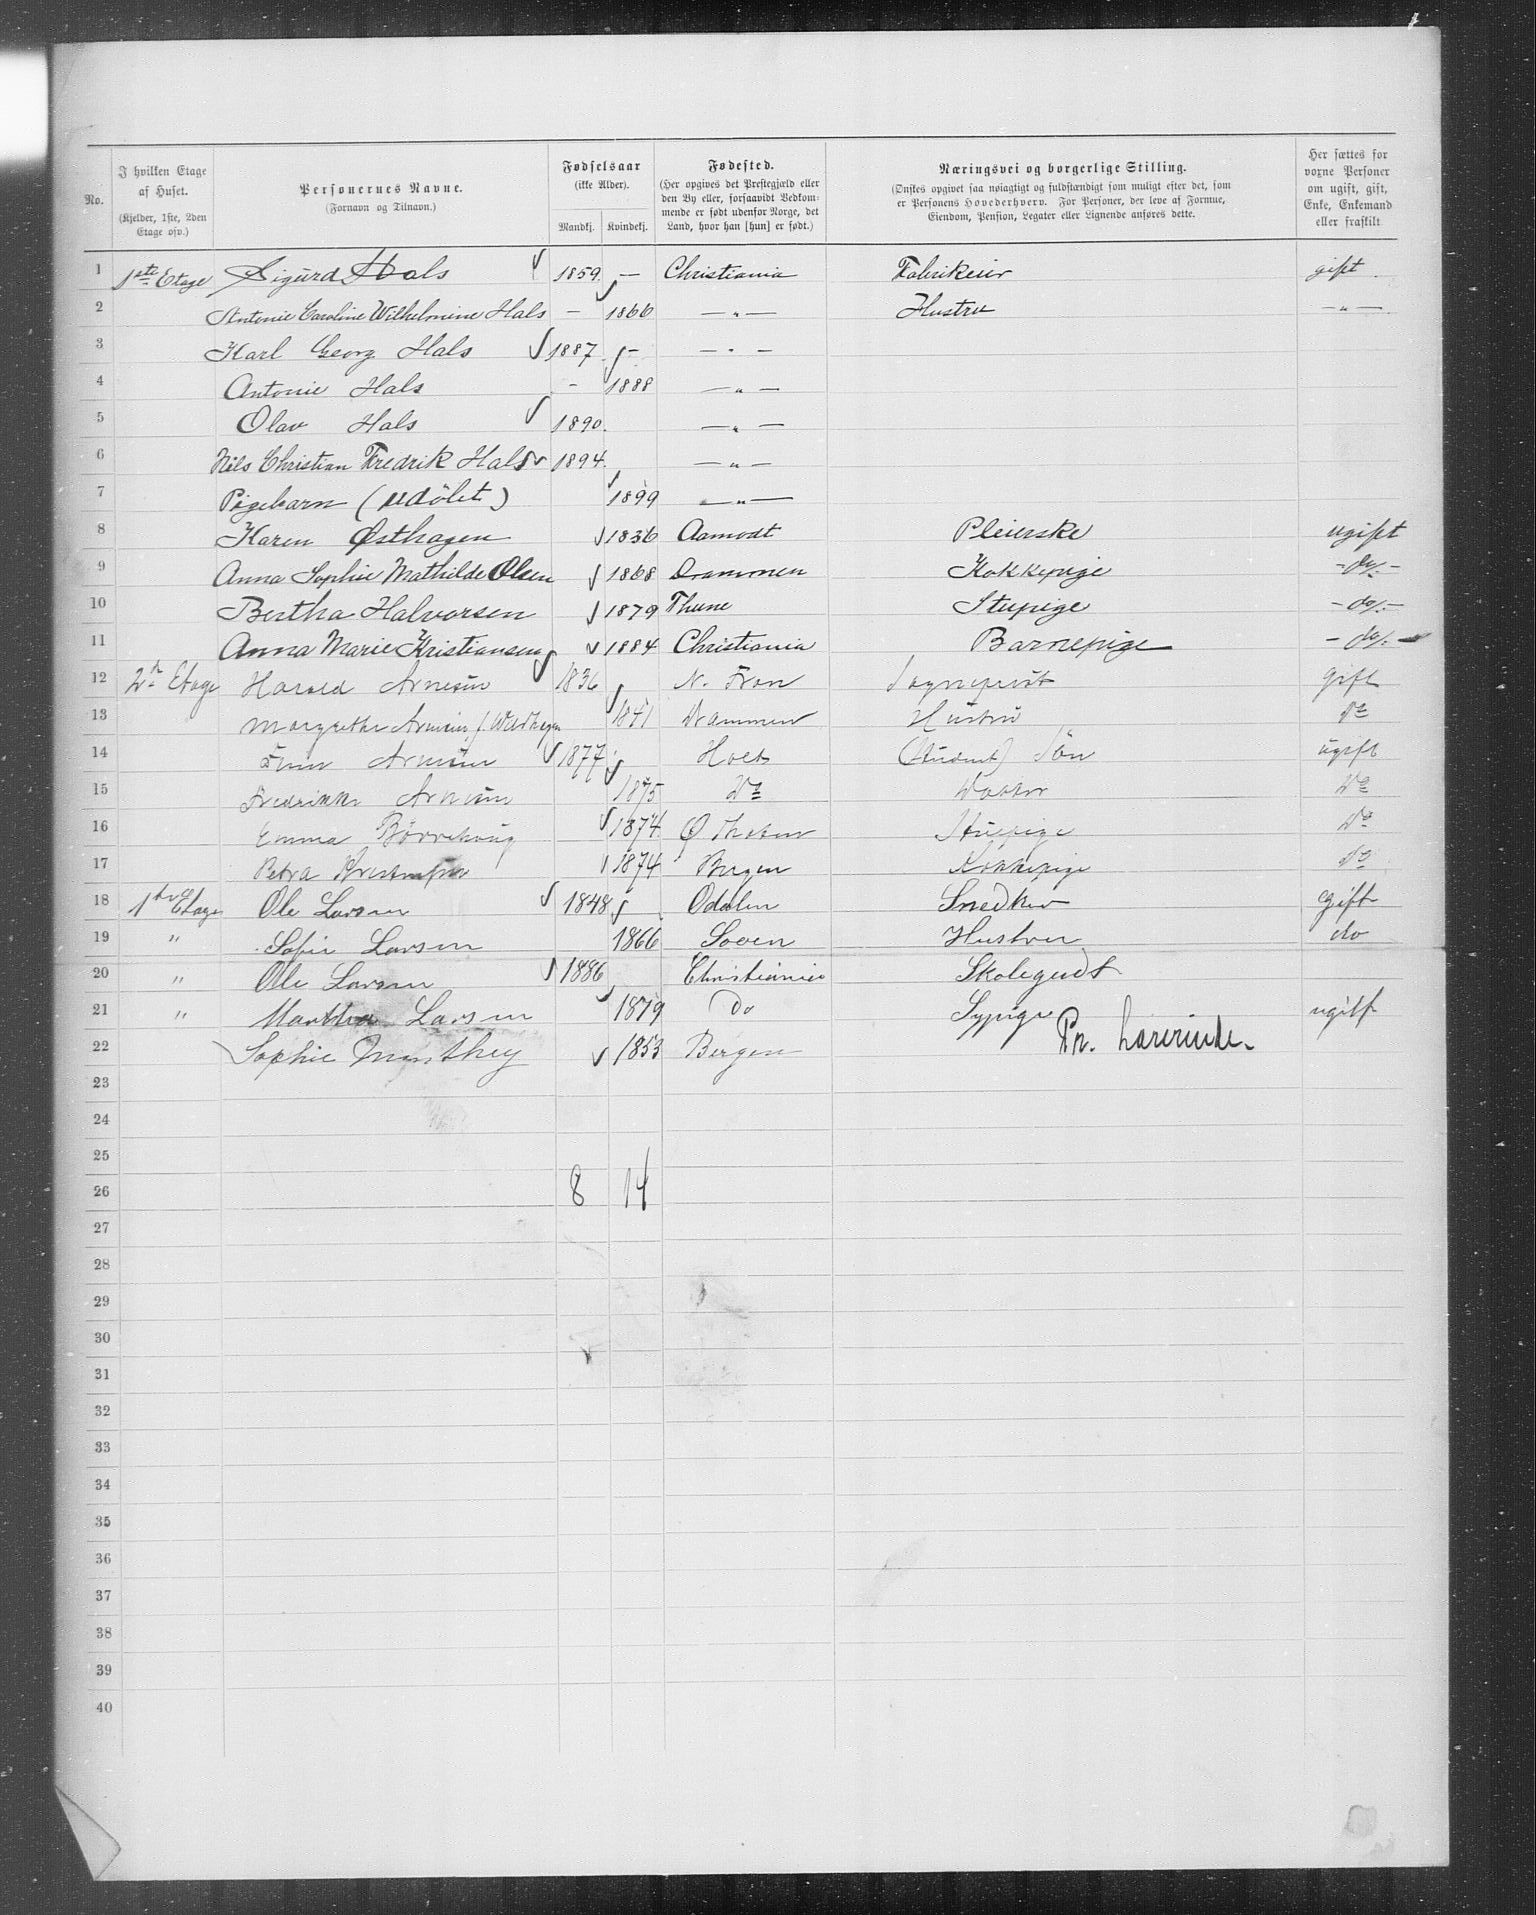 No. | I hvilken Etage af Huset. (Kjelder, 1ste, 2den Etage osv.) | Personernes Navne. (Fornavn og Tilnavn.) | Fødselsaar (ikke Alder). Mandkj. Kvindekj. | Fødested. (Her opgives det Prestegjæld eller den By eller, forsaavidt Vedkommende er født udenfor Norge, det Land, hvor han [hun] er født.) | Næringsvei og borgerlige Stilling. (Ønskes opgivet saa nøiagtigt og fuldstændigt som muligt efter det, som er Personens Hovederhverv. For Personer, der leve af Formue, Eiendom, Pension, Legater eller Lignende anføres dette. | Her sættes for vorne Personer om ugift, gift, Enke, Enkemand eller fraskilt
1 1ste Etage Sigurd Hals 1859. — Christiania Fabrikeier gift.
2 Antonie Caroline Wilhelmine Hals — 1866 — „ — Hustru — „ —
3 Karl Georg Hals 1887 — — „ —
4 Antonie Hals - 1888 — „ —
5 Olav Hals 1890. — „ —
6 Nils Christian Fredrik Hals 1894. — „ —
7 Pigebarn (udöbt) 1899 — „ —
8 Karen Østhagen 1836 Aamodt Pleierske ugift
9 Anna Sophie Mathilde Olsen 1868 Drammen Kokkepige - do. -
10 Bertha Halvorsen 1879 Thune Stupige - do. -
11 Anna Marie Kristiansen 1884 Christiania Barnepige - do. -
12 2n Etage Harald Arnesen 1836 N. Fron Sogneprest gift
13 Margrethe 1841 Drammen Hustru Do
14 1877 Holt (Student) Sön ugift
15 Fredrikke 1875 Do Datter Do
16 Emma 1874 Stuepige Do
17 Petra 1874 Bergen Kokkepige Do
18 1ste Etage Ole Larsen 1848 Odalen Snedker gift
19 „ Sofie Larsen 1866 Hustru do
20 „ Ole Larsen 1886 Christiania Skolegudt
21 „ Martha Larsen 1879 Do Sypige ugift
22 Sophie Manthey 1853 Bergen Pr. Lærerinde.
23
24
25
26 8 14
27
28
29
30
31
32
33
34
35
36
37
38
39
40